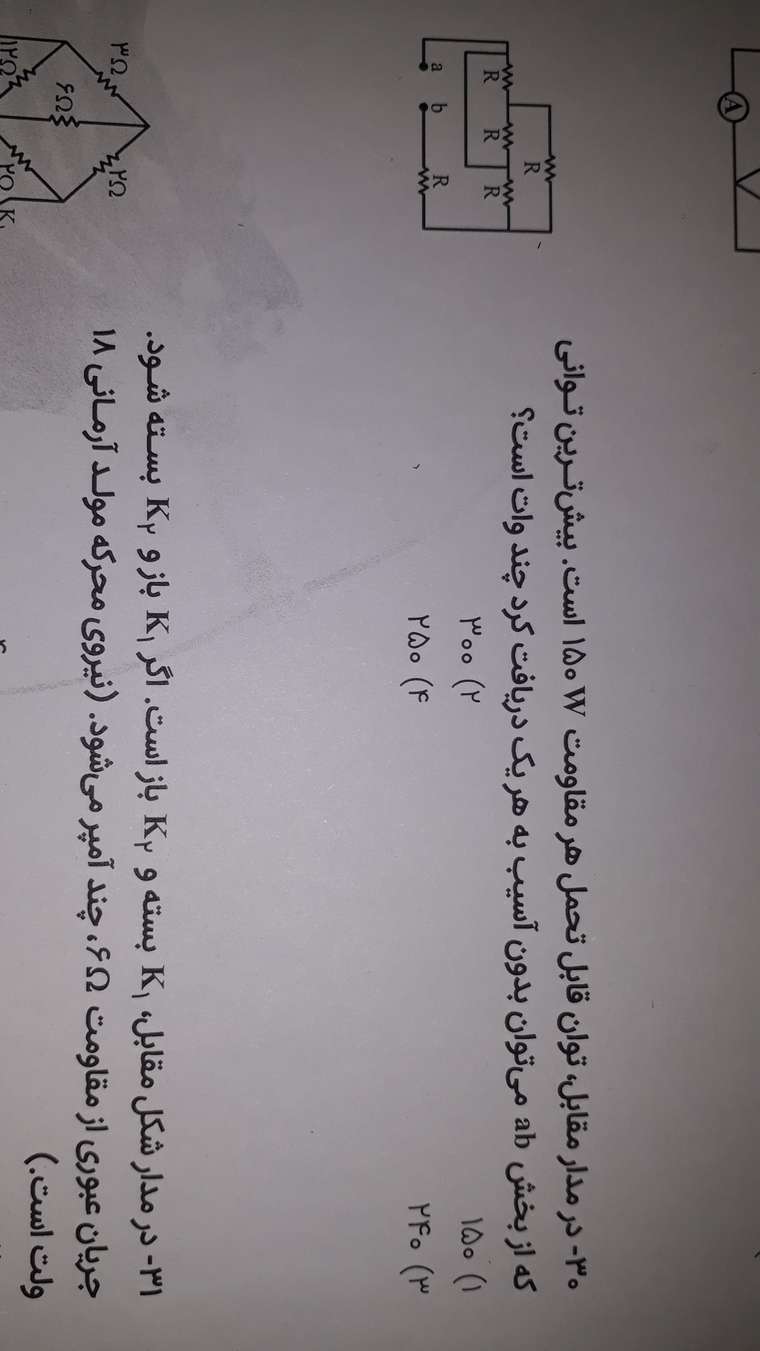 ۳۰- در مدار مقابل، توان قابل تحمل هر مقاومت ۱۵۰ W است. بیش‌ترین توانی
که از بخش ab می‌توان بدون آسیب به هر یک دریافت کرد چند وات است؟
۱) ۱۵۰
۲) ۳۰۰
۳) ۲۴۰
۴) ۲۵۰
R
R
R
R
R
a
b
A
۳۱- در مدار شکل مقابل، K₁ بسته و K₂ باز است. اگر K₁ باز و K₂ بسته شود.
جریان عبوری از مقاومت ۶Ω، چند آمپر می‌شود. (نیروی محرکه مولد آرمانی ۱۸
ولت است.)
۳Ω
۲Ω
۶Ω
۱۲Ω
K₁